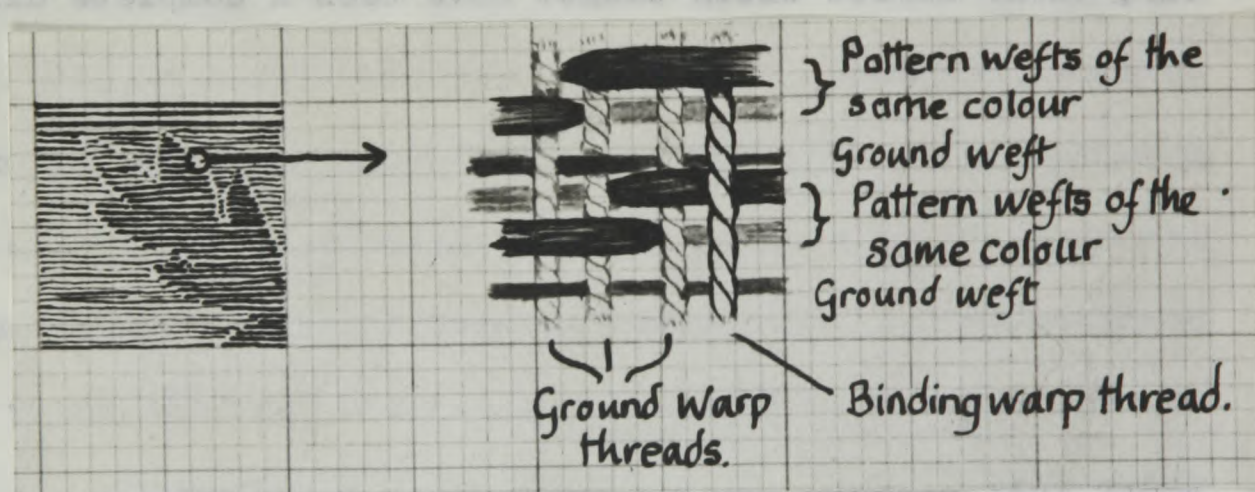 Pattern wefts of the
same colour
Ground weft
Pattern wefts of the
same colour
Ground weft
Ground warp
threads.
Binding warp thread.